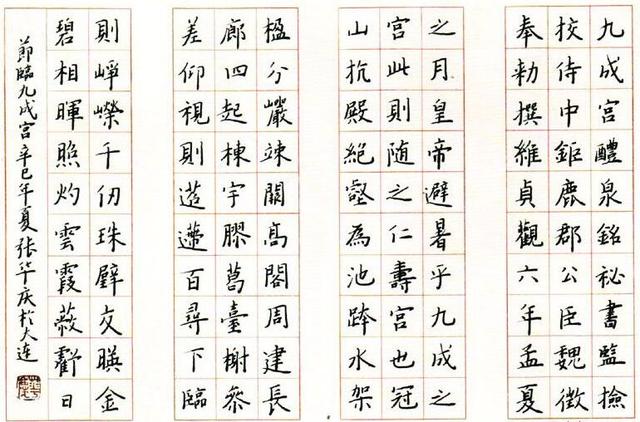 九成宮醴泉銘秘書監撿
校侍中鉅鹿郡公臣魏徵
奉勅撰維貞觀六年孟夏
之月皇帝避暑乎九成之
宮此則随之仁壽宮也冠
山抗殿絕壑為池跨水架
楹分巖竦闕高閣周建長
廊四起棟宇膠葛臺榭叅
差仰視則迢遰百尋下臨
則崢嶸千仞珠璧交暎金
碧相暉照灼雲霞蔽虧日
節臨九成宮辛巳年夏张华庆於大連